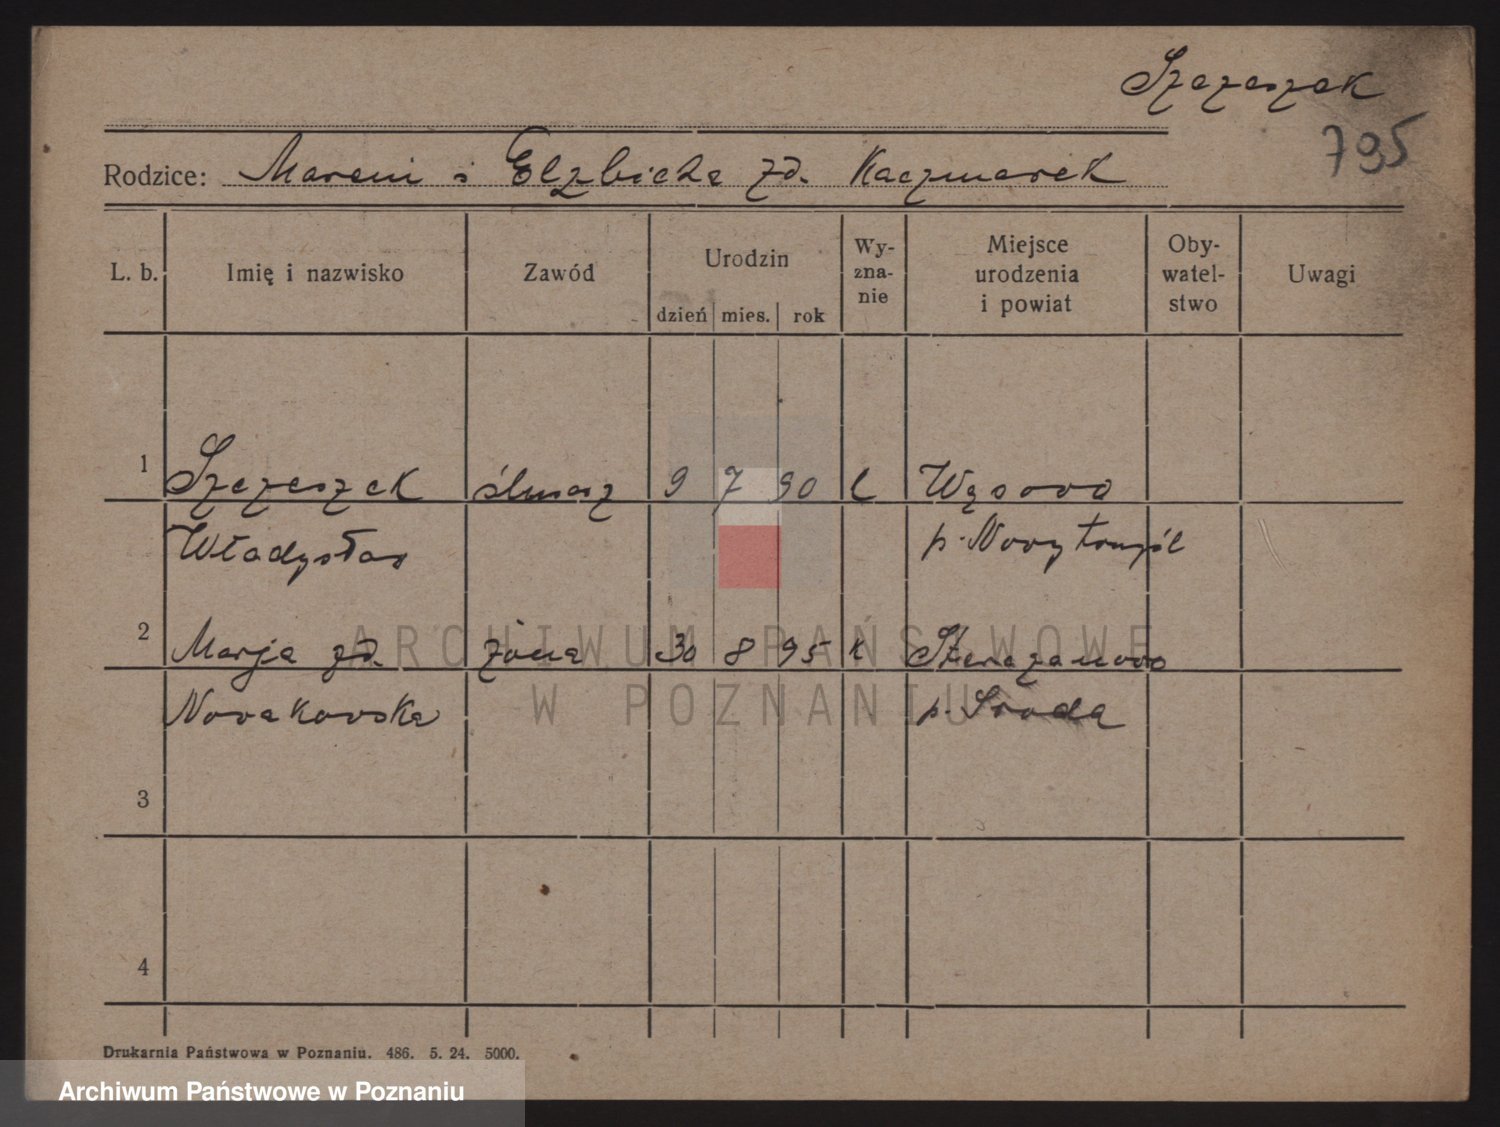 Szczeszak
795
Rodzice: Marcin i Elzbieta zd. Kaczmarek
L. b. Imię i nazwisko Zawód Urodzin dzień mies. rok Wy-zna-nie Miejsce urodzenia i powiat Oby-watel-stwo Uwagi
1 Szczeszak ślusarz 9 7 90 k Wąsowo
Władysław p. Nowy tomyśl
2 Marja zd. żona 30 8 95 k
Nowakowska p. Środa
3
4
ARCHIWUM PAŃSTWOWE
W POZNANIU
Drukarnia Państwowa w Poznaniu. 486. 5. 24. 5000.
Archiwum Państwowe w Poznaniu